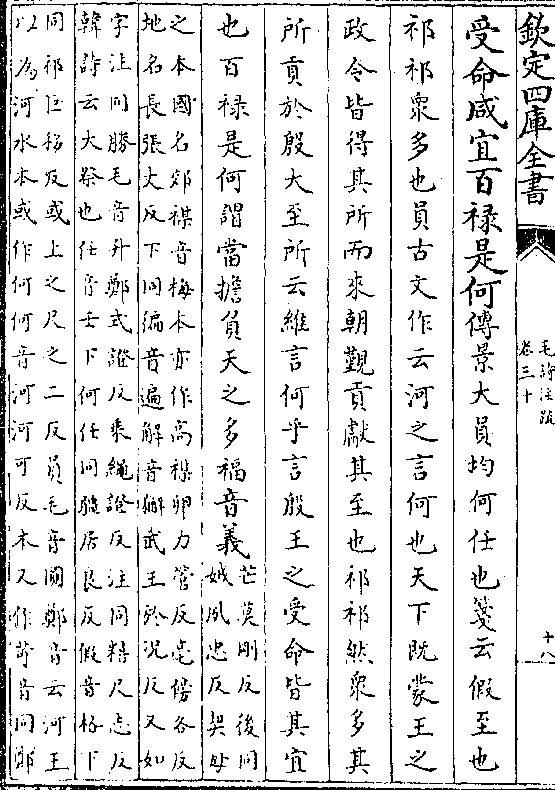 欽定四庫全書
毛詩注疏
卷三十
十八
受命咸宜百祿是何傳景大員均何任也箋云假至也
祁祁衆多也員古文作云河之言何也天下既蒙王之
政令皆得其所而來朝覲貢獻其至也祁祁然衆多其
所貢於殷大至所云維言何乎言殷王之受命皆其宜
也百祿是何謂當擔負天之多福音義
芒莫剛反後同
娀夙忠反契母
之本國名郊禖音梅本亦作高禖卵力管反亳傍各反
地名長張丈反下同徧音遍解音懈武王於況反又如
字注同勝毛音升鄭式證反乘繩證反注同糦尺志反
韓詩云大祭也任音壬下何任同疆居良反假音格下
同祁巨移反或上之尺之二反員毛音圓鄭音云河王
以為河水本或作何何音河河可反本又作荷音同鄭